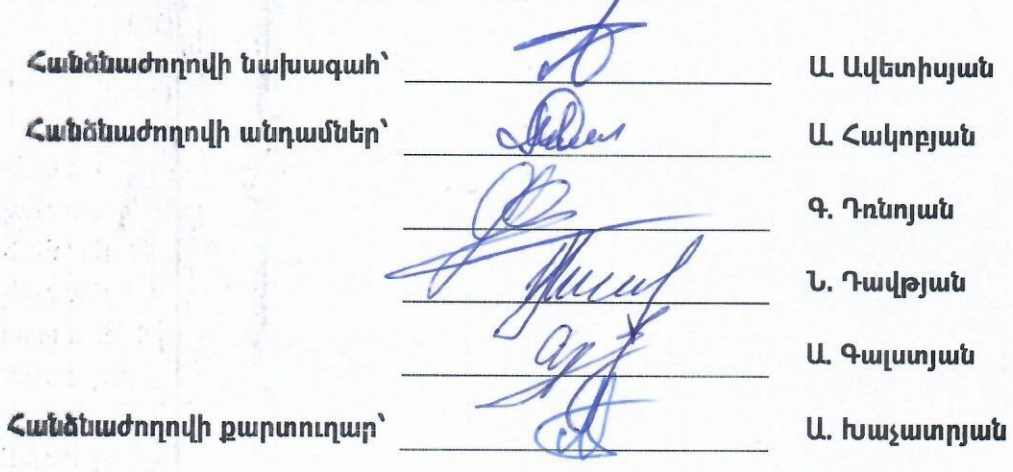 Հանձնաժողովի նախագահ՝ Ա. Ավետիսյան
Հանձնաժողովի անդամներ՝ Ա. Հակոբյան
Գ. Դռնոյան
Ն. Դավթյան
Ա. Գալստյան
Հանձնաժողովի քարտուղար՝ Ա. Խաչատրյան